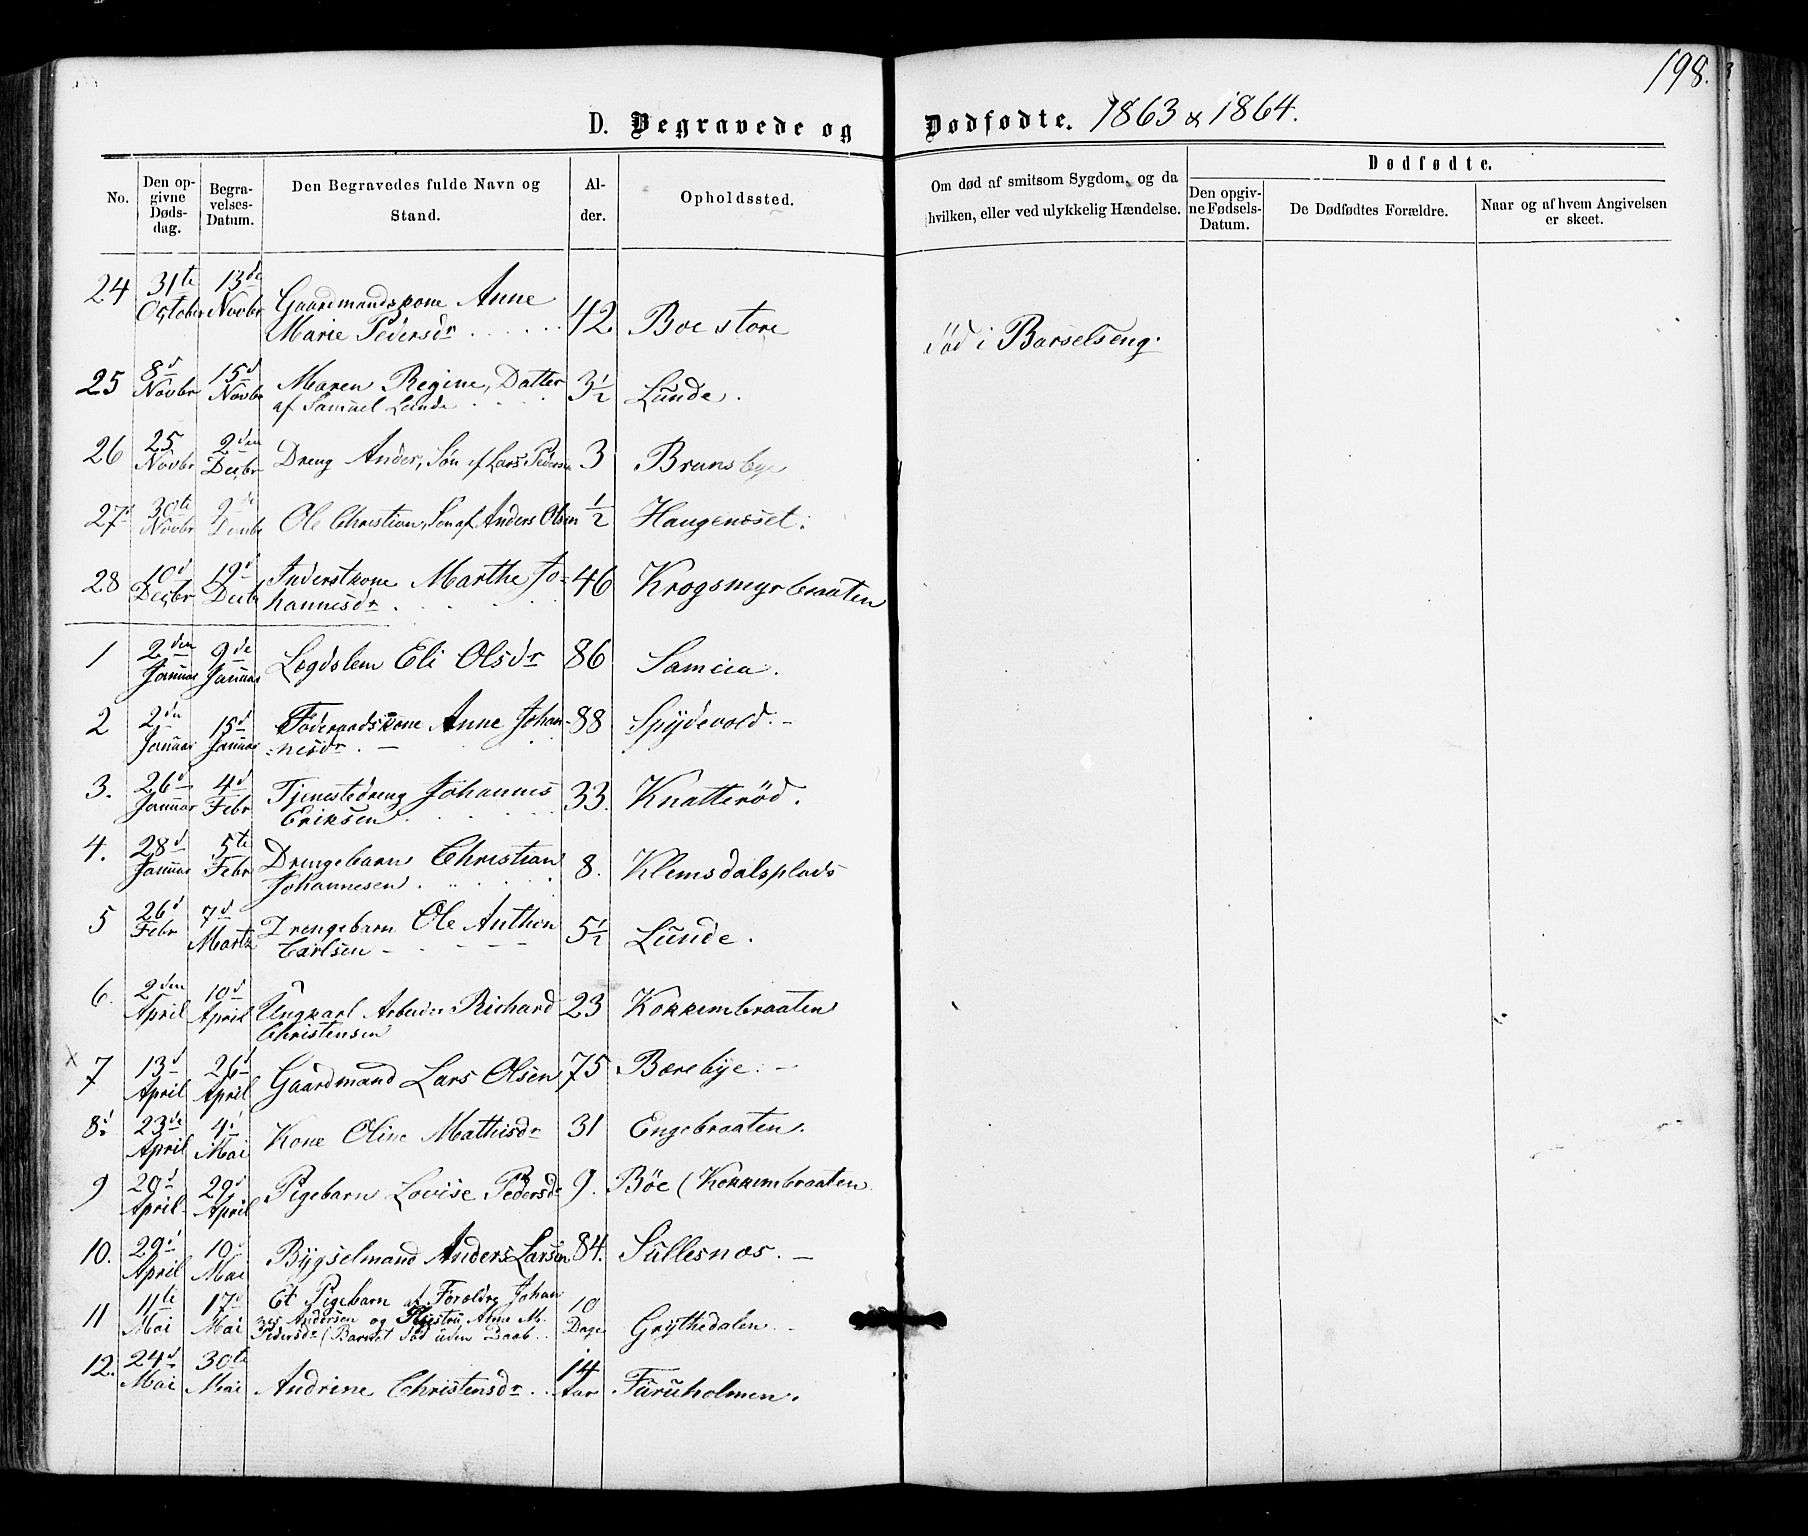 198.
D. Begravede og Dødfødte. 1863 & 1864.
No.
Den opgivne Dødsdag.
Begravelses-Datum.
Den Begravedes fulde Navn og Stand.
Alder.
Opholdssted.
Om død af smitsom Sygdom, og da hvilken, eller ved ulykkelig Hændelse.
Dødfødte.
Den opgivne Fødsels-Datum.
De Dødfødtes Forældre.
Naar og af hvem Angivelsen er skeet.
24 31te October 13de Novbr Gaardmandskone Anne Marie Pedersdr 42. Boe store død i Barselseng.
25 8d Novbr 15d Novbr Maren Regine, Datter af Samuel Lunde 3½ Lunde.
26 25 Novbr 2den Decbr Dreng Ander, Søn af Lars Pedersen 3 Brunsbye
27 30te Novbr 2de Decbr Ole Christian, Søn af Anders Olsen ½ Haugenæset.
28 10d Decbr 19d Decbr Inderstkone Marthe Johannesdr 46 Krogsmyrbraaten
1 2den Januar 9de Januar Lægdslem Eli Olsdr 86 Sameia.
2 2den Januar 15d Januar Føderaadskone Anne Johannesdr 88 Spydevold.
3. 26d Januar 4d Febr Tjenestedreng Johannes Eriksen 33. Knatterød.
4. 28d Januar 5te Febr Drengebarn Christian Johannesen 8. Klemsdalsplads
5 26d Febr 7d Marts Drengebarn Ole Anthon Carlsen 5½ Lunde.
6. 2den April 10d April Ungkarl Arbeider Richard Christensen 23 Kokkembraaten
x 7 13d April 26d April Gaardmand Lars Olsen 75 Bærebye.
8. 23de April 4d Mai Kone Oline Mathisdr 31 Engebraaten.
9 20d April 29d April Pigebarn Lovise Pedersdr 9. Böe (Kokkembraaten
10. 29d April 10d Mai Bygselmand Anders Larsen 84. Sullesnæs.
11 11te Mai 17d Mai Et Pigebarn af Forældre Johannes Andersen og Hustru Anne M. Pedersdr (Barnet død uden Daab 10 Dage Grythedalen
12. 24d Mai 30te Mai Andrine Christensdr 14 Aar Furuholmen.